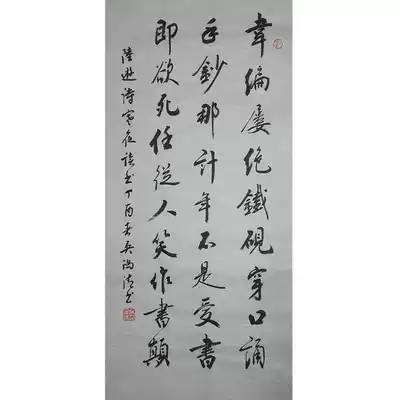 韋編屢絕鐵硯穿口誦
手鈔那計年不是愛書
即欲死任從人笑作書顛
陸遊詩寒夜讀書丁酉春